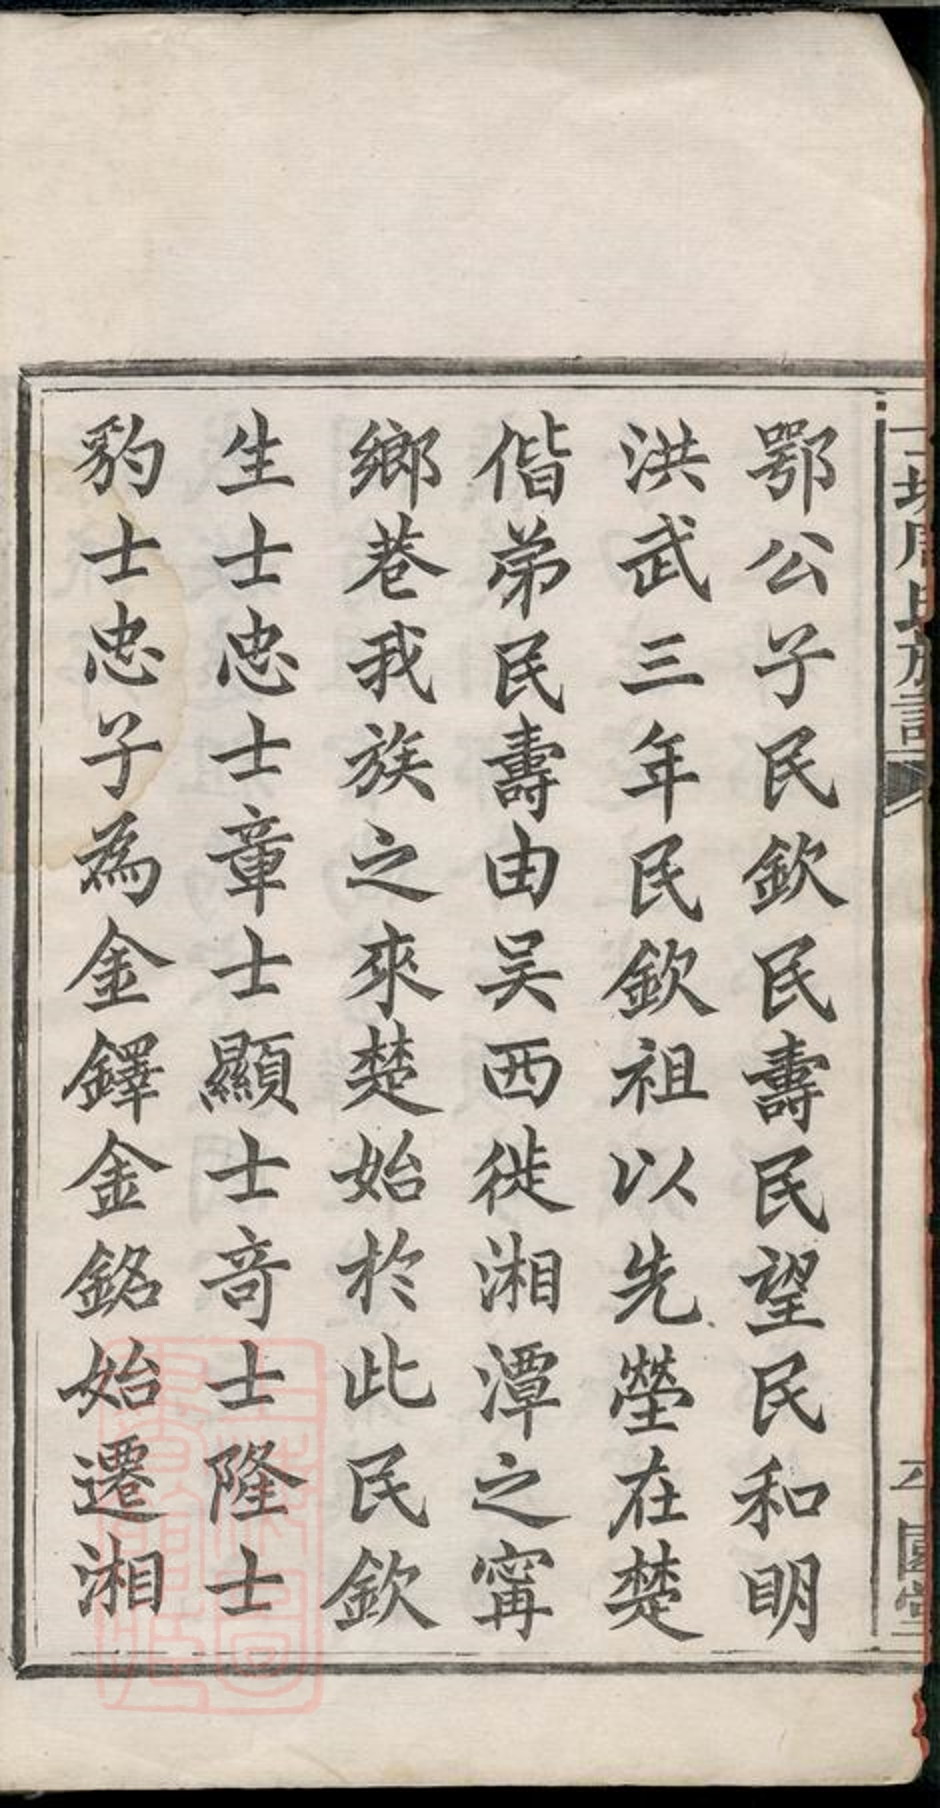 鄂公子民欽民壽民望民和明
洪武三年民欽祖以先塋在楚
偕弟民壽由吴西徙湘潭之甯
鄉巷我族之來楚始於此民欽
生士忠士章士顯士奇士隆士
豹士忠子為金鐸金銘始遷湘